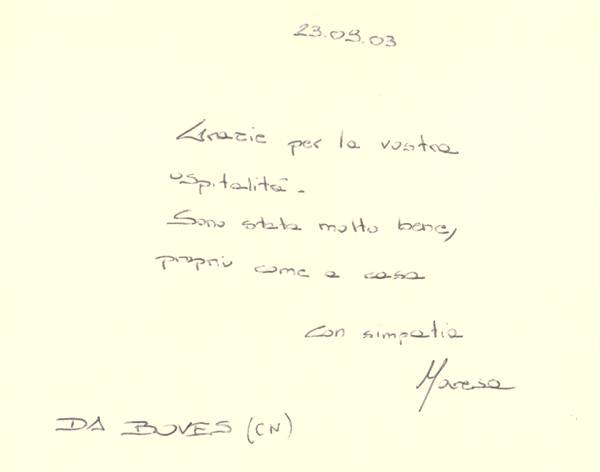 23.09.03
Grazie per la vostra
ospitalità.
Sono stata molto bene,
proprio come a casa
Con simpatia
DA BOVES (CN)